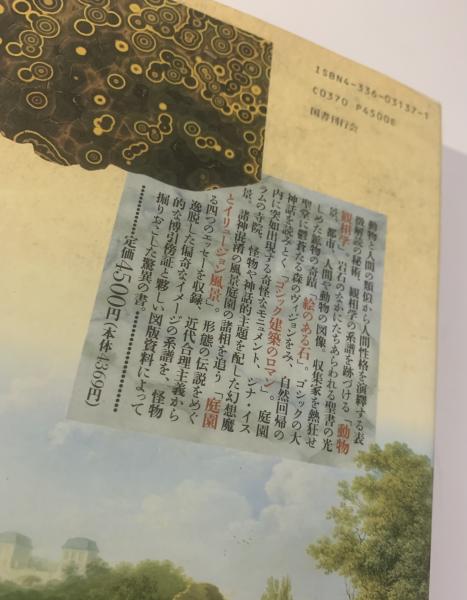 ISBN4-336-03137-1
C0370 P4500E
国書刊行会
動物と人間の類似から人間性格を演繹する表
徴解読の秘術、観相学の系譜を跡づける「動物
観相学」。岩石のなかにたちあらわれる聖書の光
景、都市、人間や動物の図像。収集家を熱狂せ
しめた鉱物の奇蹟「絵のある石」。ゴシックの大
聖堂に鬱蒼たる森のヴィジョンをみ、自然回帰の
神話を読みとく「ゴシック建築のロマン」。庭園
内に突如出現する奇怪なモニュメント、シナ・イス
ラムの寺院、怪物や神話的主題を配した幻想魔
景、諸神混淆の風景庭園の諸相を追う「庭園
とイリュージョン風景」。形態の伝説をめぐ
る四つのエッセーを収録、近代合理主義から
逸脱した偏奇なイメージの系譜を、怪物
的な博引傍証と夥しい図版資料によって
掘りおこした驚異の書。
定価4500円(本体4369円)